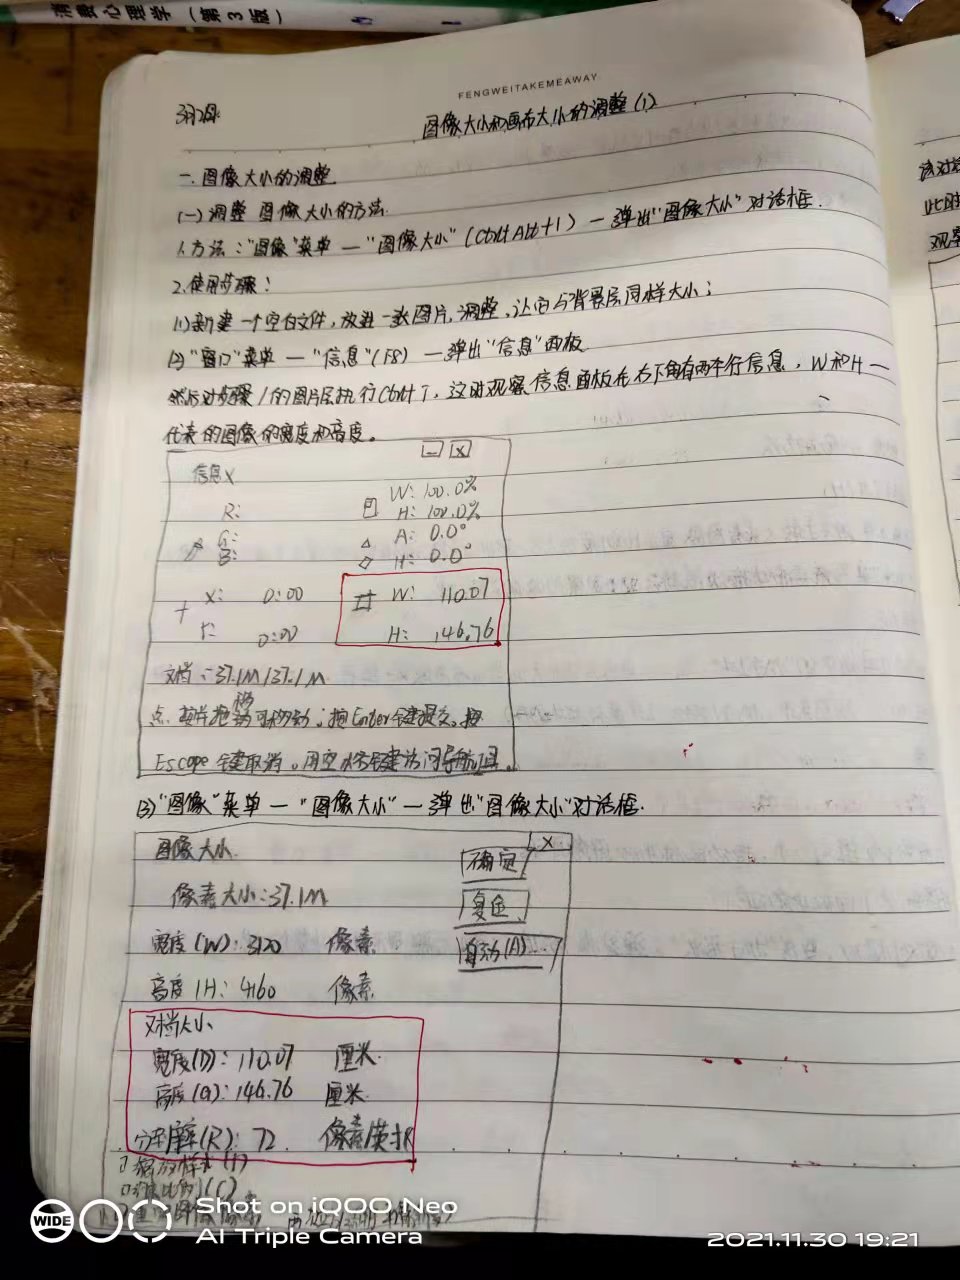 消费心理学（第3版）
FENGWEITAKEMEAWAY
图像大小和画布大小的调整(1)
一.图像大小的调整
(一)调整 图像大小的方法.
1.方法："图像"菜单—"图像大小"(Ctrl+Alt+I)—弹出"图像大小"对话框.
2.使用步骤：
(1)新建一个空白文件，放进一张图片,调整,让它与背景层同样大小；
(2)"窗口"菜单—"信息"(F8)—弹出"信息"面板
然后对步骤1的图片层执行Ctrl+T，这时观察信息面板在右下角有两行信息，W和H—
代表的图像的宽度和高度。
信息X
W: 100.0%
R:
H: 100.0%
G:
A: 0.0°
B:
H: 0.0°
X: 0:00
W: 110.07
Y: 0:00
H: 146.76
文档：37.1M/37.1M
点按并拖动可移动；按Enter键提交。按
Escape键取消。用空格键访问导航工具。
(3)"图像"菜单—"图像大小"—弹出"图像大小"对话框.
图像大小 X
确定
像素大小:37.1M
复位
宽度(W): 3120 像素
自动(A)...
高度(H: 4160 像素
文档大小
宽度(D): 110.07 厘米
高度(G): 146.76 厘米
分辨率(R): 72 像素/英寸
缩放样式(Y)
(C)
该对
此时
观察
WIDE
Shot on iQOO Neo
AI Triple Camera
2021.11.30 19:21